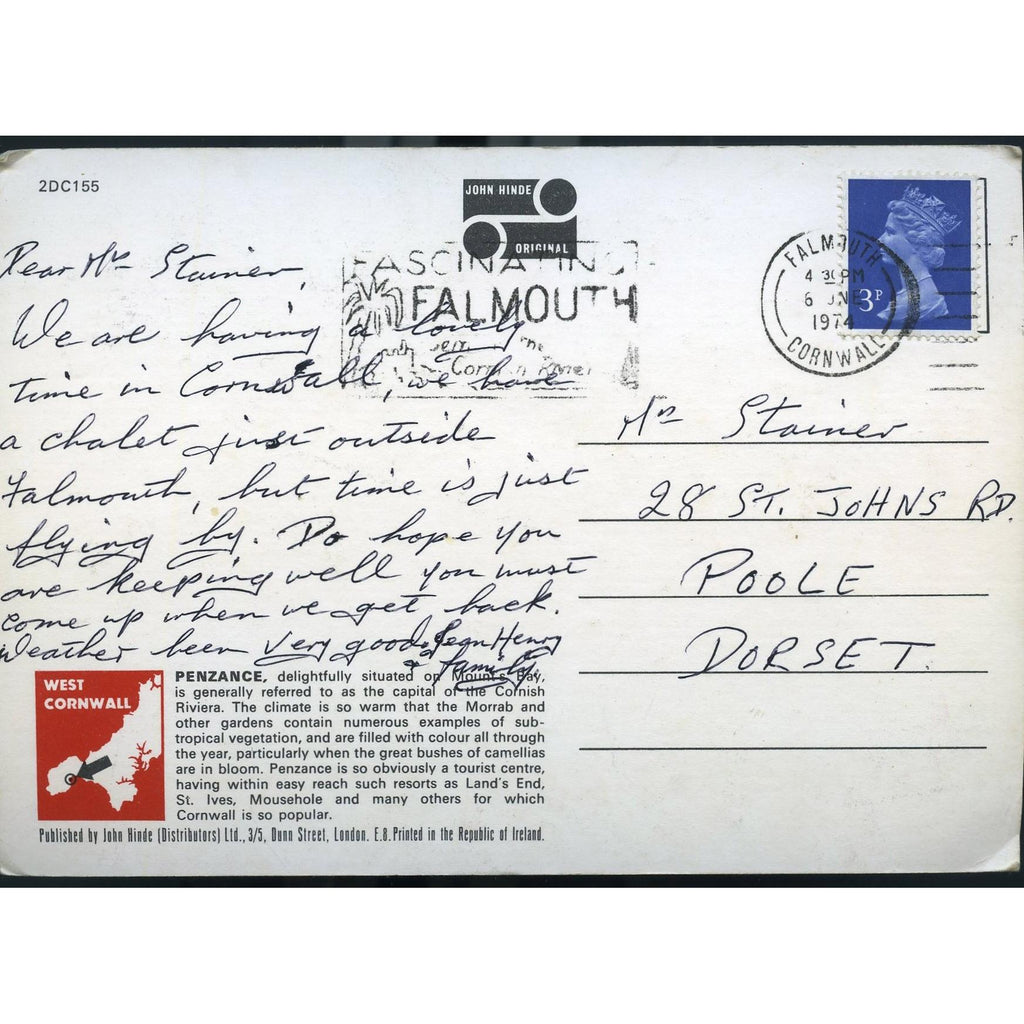 2DC155
JOHN HINDE
ORIGINAL
FASCINATING
FALMOUTH
FALMOUTH
4 30 PM
6 JNE
1974
CORNWALL
3P
Dear Mrs Stainer,
We are having a lovely
time in Cornwall, we have
a chalet just outside
Falmouth, but time is just
flying by. Do hope you
are keeping well you must
come up when we get back.
Weather been very good. Jean Henry
& family.
Mrs Stainer
28 ST. JOHNS RD.
POOLE
DORSET.
WEST
CORNWALL
PENZANCE, delightfully situated on Mount's Bay,
is generally referred to as the capital of the Cornish
Riviera. The climate is so warm that the Morrab and
other gardens contain numerous examples of sub-
tropical vegetation, and are filled with colour all through
the year, particularly when the great bushes of camellias
are in bloom. Penzance is so obviously a tourist centre,
having within easy reach such resorts as Land's End,
St. Ives, Mousehole and many others for which
Cornwall is so popular.
Published by John Hinde (Distributors) Ltd., 3/5, Dunn Street, London. E.8. Printed in the Republic of Ireland.